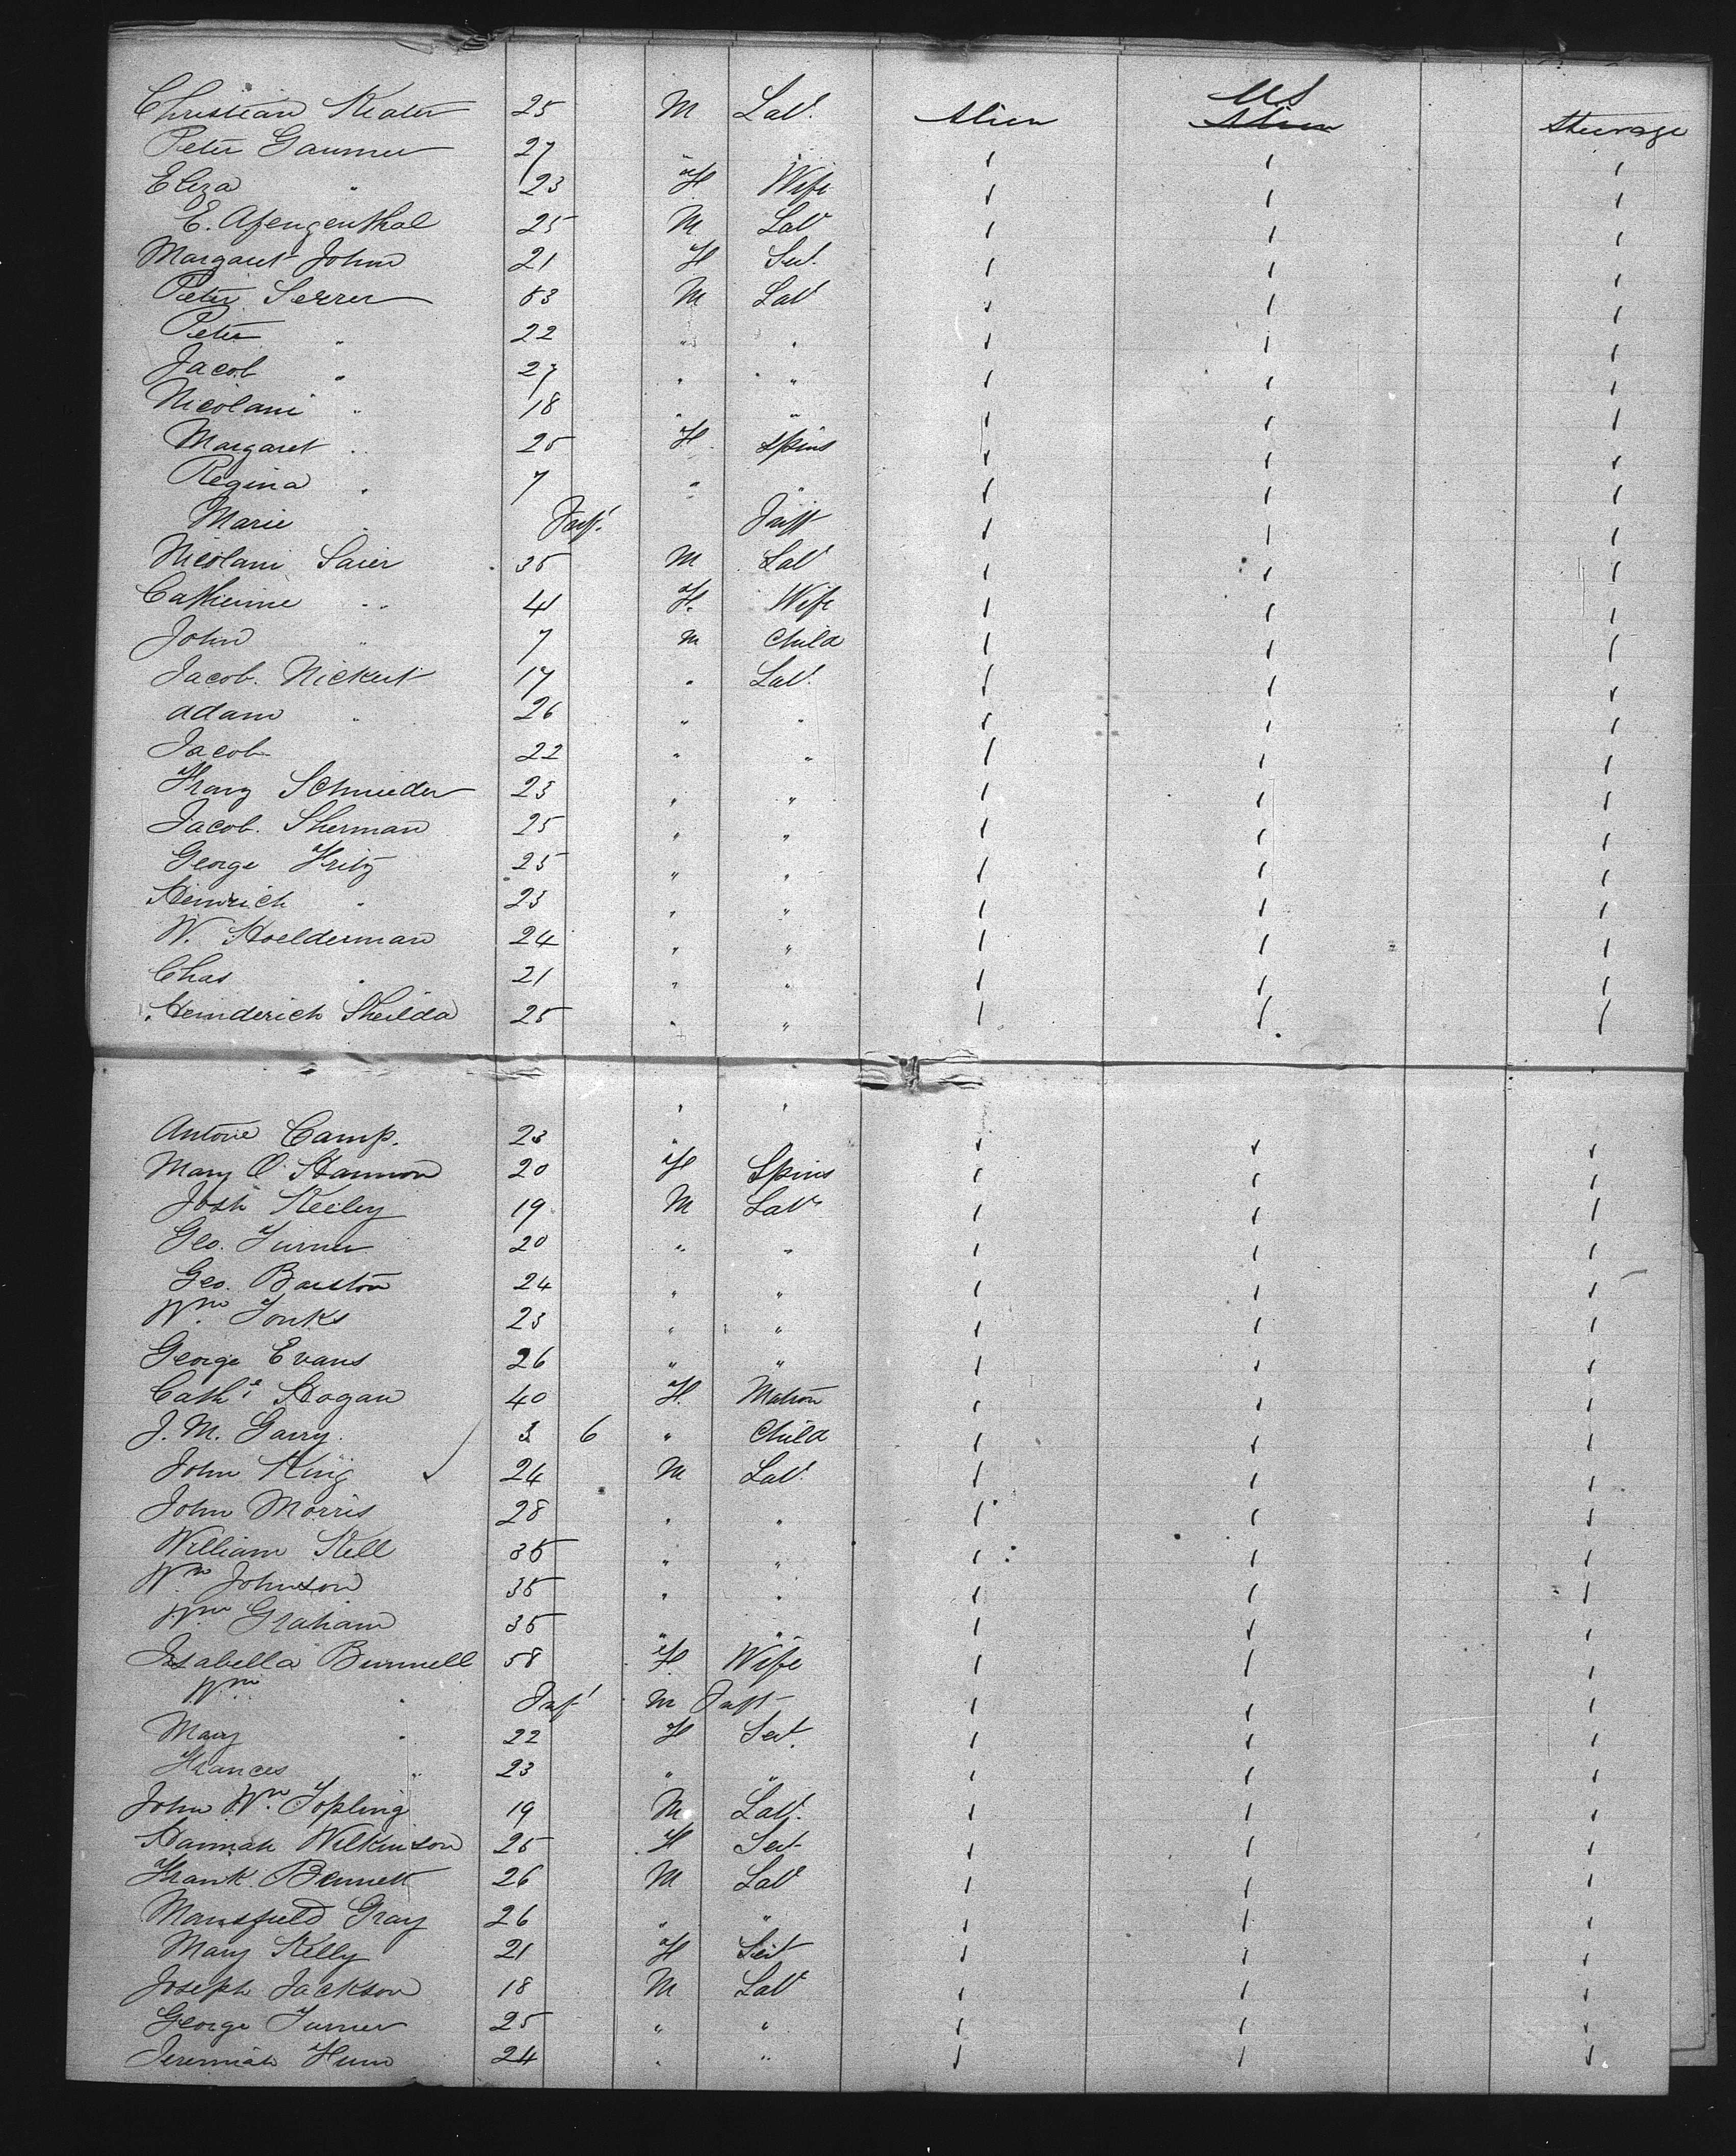 Christian Keater 25 M Lab. Alien US Alien Steerage
Peter Gaumer 27 " "
Eliza " 23 F Wife
E. Afengenthal 25 M Lab
Margaret John 21 F Ser.
Peter Serrer 53 M Lab
Peter " 22 " "
Jacob " 27 " "
Nicolani " 18 " "
Margaret " 25 F Spins
Regina " 7 " "
Marie Inft. Inft
Nicolani Saier 35 M Lab
Catherine " 41 F. Wife
John " 7 M Child
Jacob. Nickert 17 " Lab.
Adam " 26 " "
Jacob 22 " "
Franz Schnieder 23 " "
Jacob. Sherman 25 " "
George Fritz 25 " "
Heinrich " 23 " "
W. Hoelderman 24 " "
Chas " 21 " "
Heinderich Sheilda 25 " "
" "
Antone Camp. 23 "
Mary O'Hannon 20 F Spins
Josh Keiley 19 M Lab
Geo. Turner 20 " "
Geo. Barston 24 " "
Wm. Tonks 23 " "
George Evans 26 " "
Cathe Hogan 40 F. Matron
J. M. Garry. 3 6 " Child
John King 24 M Lab.
John Morris 28 " "
William Kell 35 " "
Wm Johnson 35 " "
Wm Graham 35 " "
Isabella Bunnell 58 F. Wife
Wm " Inft M Inft
Mary " 22 F Ser.
Frances " 23 " "
John Wm. Topling 19 M Lab.
Hannah Wilkinson 25 F Ser
Frank. Bennett 26 M Lab
Mansfield Gray 26 " "
Mary Kelly 21 F Ser
Joseph Jackson 18 M Lab
George Turner 25 " "
Jeremiah 24 " "